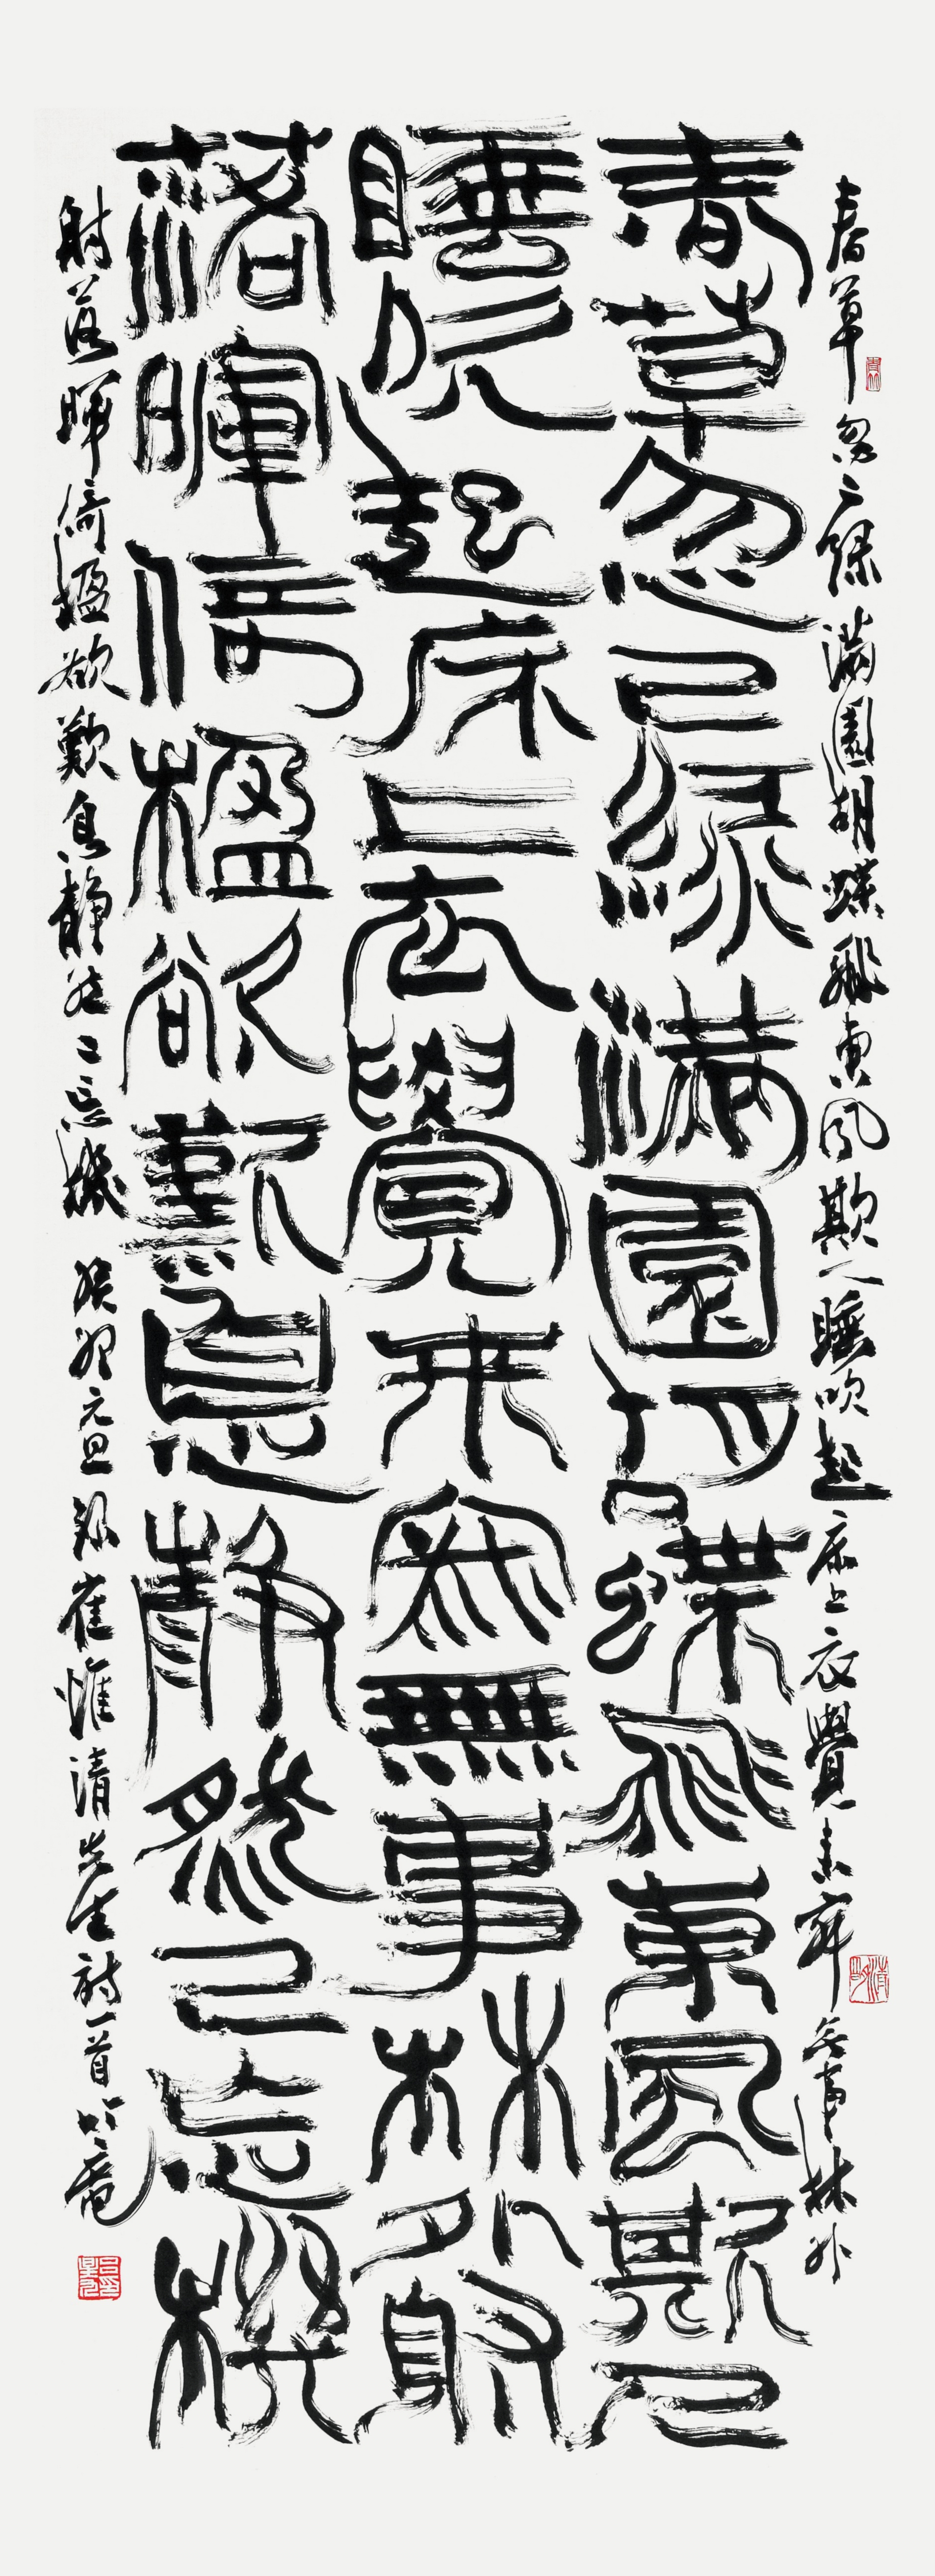 春草忽已綠滿園胡蝶飛東風欺人睡吹起床上衣覺來寂無事林外
春草忽已綠滿園胡蝶飛東風欺人
睡吹起床上衣覺來寂無事林外射
落暉倚楹欲歎息靜然已忘機
射落暉倚楹欲歎息靜然已忘機 癸卯元旦錄崔惟清先生詩一首 竹庵